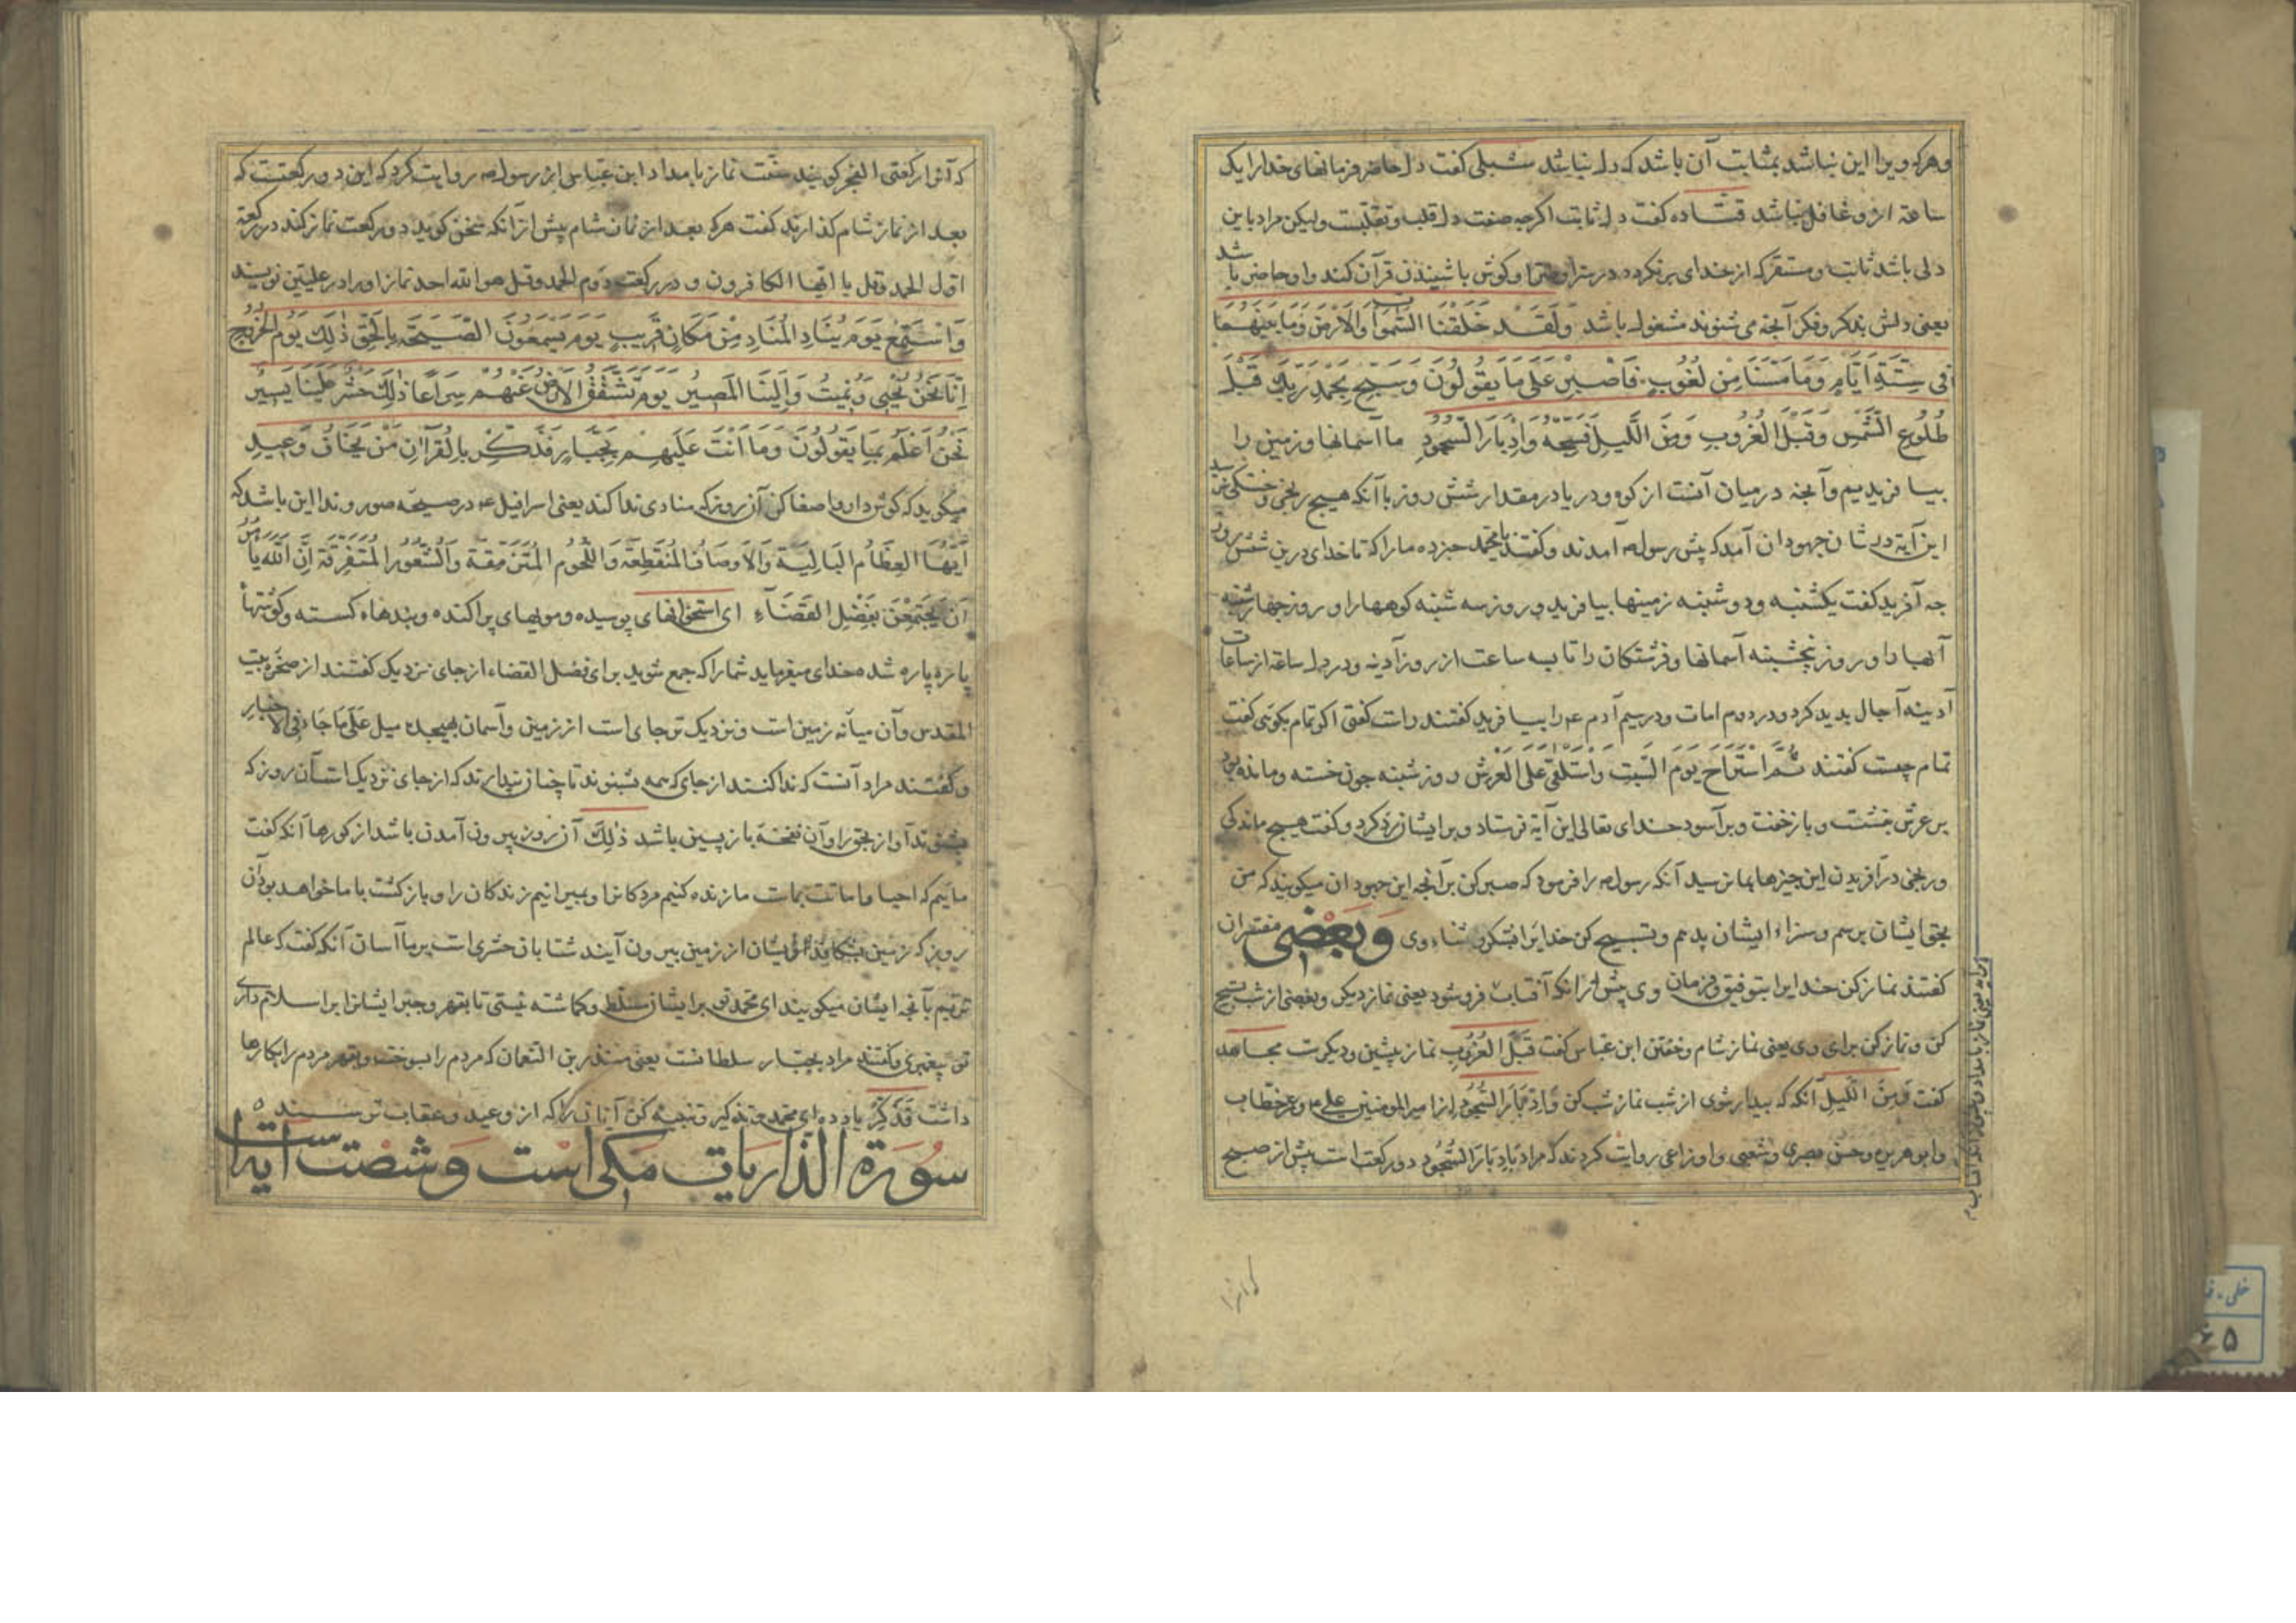 وهرکه ویرا این نباشد بمثابت آن باشد که دل نباشد شبلی کفت دل حاضر فرمانهای خدا را یک
ساعة ازو غافل نباشد قتاده کفت دل ثابت اکرچه صفت دل قلب وتقلبست ولیکن مراد باین
دلی باشد ثابت ومستقر که از خدای برنکرده در سرا وضرا وکوش باشنیدن قرآن کند واو حاضر باشد
یعنی دلش بذکر وفکر آنجه می شنوند مشغول باشد وَلَقَد خَلَقنَا السَّمٰوَاتِ وَالاَرضَ وَمَا بَینَهُمَا
فِی سِتَّةِ اَیَّامٍ وَمَا مَسَّنَا مِن لُغُوبٍ فَاصبِر عَلٰی مَا یَقُولُونَ وَسَبِّح بِحَمدِ رَبِّکَ قَبلَ
طُلُوعِ الشَّمسِ وَقَبلَ الغُرُوبِ وَمِنَ اللَّیلِ فَسَبِّحهُ وَاِدبَارَ السُّجُودِ ما آسمانها وزمین را
بیافریدیم وآنجه درمیان آنست از کوه ودریا در مقدار شش روز باآنکه هیچ رنجی وخستکی نرسید
این آیة در شان جهودان آمد که پیش رسول صه آمدند وکفتند یا محمد خبر ده ما را که تا خدای درین شش روز
جه آفرید کفت یکشنبه ودوشنبه زمینها بیافرید وروز سه شنبه کوهها را و روز جهارشنبه
آبها را وروز پنجشنبه آسمانها وفرشتکان را تا سه ساعت از روز آدینه ودر اول ساعة از ساعات
آدینه آجال پدید کرد ودر دوم امات ودر سیم آدم ع را بیافرید کفتند راست کفتی اکر تمام بکوئی کفت
تمام چیست کفتند ثُمَّ استَرَاحَ یَومَ السَّبتِ وَاستَلقٰی عَلَی العَرشِ روز شنبه جون خسته ومانده بود
بر عرش خفت وباز خفت وبرآسود خدای تعالی این آیة فرستاد وبر ایشان رد کرد وکفت هیچ ماندکی
ورنجی در آفریدن این جیزها بما نرسید آنکه رسول صه را فرمود که صبر کن بر آنجه این جهودان میکویند که من
بحق ایشان برسم وسزاء ایشان بدهم وتسبیح کن خدایرا بشکر وثناء وی وَبَعضی مفسران
کفتند نماز کن خدایرا بتوفیق وفرمان وی پیش از آنکه آفتاب فروشود یعنی نماز دیکر وبعضی از شب تسبیح
کن ونماز کن برای وی یعنی نماز شام وخفتن ابن عباس کفت قَبلَ الغُرُوبِ نماز پیشین ودیکرست مجاهد
کفت وَمِنَ اللَّیلِ آنکه که بیدار شوی از شب نماز شب کن وَاِدبَارَ السُّجُودِ از امیر المومنین علی ع وعمر خطاب
وابو هریره وحسن بصری وشعبی واوزاعی روایت کردند که مراد بادبَارَ السُّجُودِ دو رکعت است پیش از صبح
که آنرا رکعتی الفجر کویند سنّت نماز بامداد ابن عباس از رسول صه روایت کرد که این دو رکعتست که
بعد از نماز شام کذارند کفت هرکه بعد از نماز شام پیش از آنکه سخن کوید دو رکعت نماز کند در رکعة
اول الحمد وقل یا ایها الکافرون و در رکعت دوم الحمد وقل هو الله احد نماز او را در علیین نویسند
وَاستَمِع یَومَ یُنَادِ المُنَادِ مِن مَکَانٍ قَرِیبٍ یَومَ یَسمَعُونَ الصَّیحَةَ بِالحَقِّ ذٰلِکَ یَومُ الخُرُوجِ
اِنَّا نَحنُ نُحیِی وَنُمِیتُ وَاِلَینَا المَصِیرُ یَومَ تَشَقَّقُ الاَرضُ عَنهُم سِرَاعًا ذٰلِکَ حَشرٌ عَلَینَا یَسِیرٌ
نَحنُ اَعلَمُ بِمَا یَقُولُونَ وَمَا اَنتَ عَلَیهِم بِجَبَّارٍ فَذَکِّر بِالقُراٰنِ مَن یَخَافُ وَعِیدِ
میکوید که کوش دار واصغا کن آن روز که منادی ندا کند یعنی اسرافیل ع در صیحه صور وندا این باشد که
اَیَّتُهَا العِظَامُ البَالِیَةُ وَالاَوصَافُ المُنقَطِعَةُ وَاللُّحُومُ المُتَمَزِّقَةُ وَالشُّعُورُ المُتَفَرِّقَةُ اِنَّ اللهَ یَأمُرُکُنَّ
اَن یَجتَمِعنَ بِفَضلِ القَضَآءِ ای استخوانهای پوسیده ومویهای پراکنده وبندهاء کسسته وکوشتهاء
پاره پاره شده خدای میفرماید شما را که جمع شوید برای فصل القضاء از جای نزدیک کفتند از صخره بیت
المقدس وآن میانه زمین است ونزدیک ترجای است از زمین وآسمان بهیجده میل عَلٰی مَا جَاءَ فِی الاَخبَارِ
وکفتند مراد آنست که ندا کنند از جای که همه بشنوند تا چنان پندارند که از جای نزدیک است آن روز که
بشنوند آواز بحق را وآن نفخهٔ باز پسین باشد ذٰلِکَ آن روز بیرون آمدن باشد از کورها آنکه کفت
ماییم که احیا واماتت بماست ما زنده کنیم مردکان را وبمیرانیم زندکان را وبازکشت با ما خواهد بود آن
روز که زمین بشکافد ایشان از زمین بیرون آیند شتابان حشری است بر ما آسان آنکه کفت که عالم
تریم بآنجه ایشان میکویند ای محمد تو بر ایشان مسلط وکماشته نیستی تا بقهر وجبر ایشانرا بر اسلام داری
تو پیغمبری وکفتند مراد بجبار سلطانست یعنی منذر بن النعمان که مردم را بسوخت وبقهر مردم را بکارها
داشت فَذَکِّر یاد ده ای محمد وتذکیر وتنبیه کن آنان را که از وعید وعقاب ترسند
سُورَة الذاریات مکی است وشصت آیة است